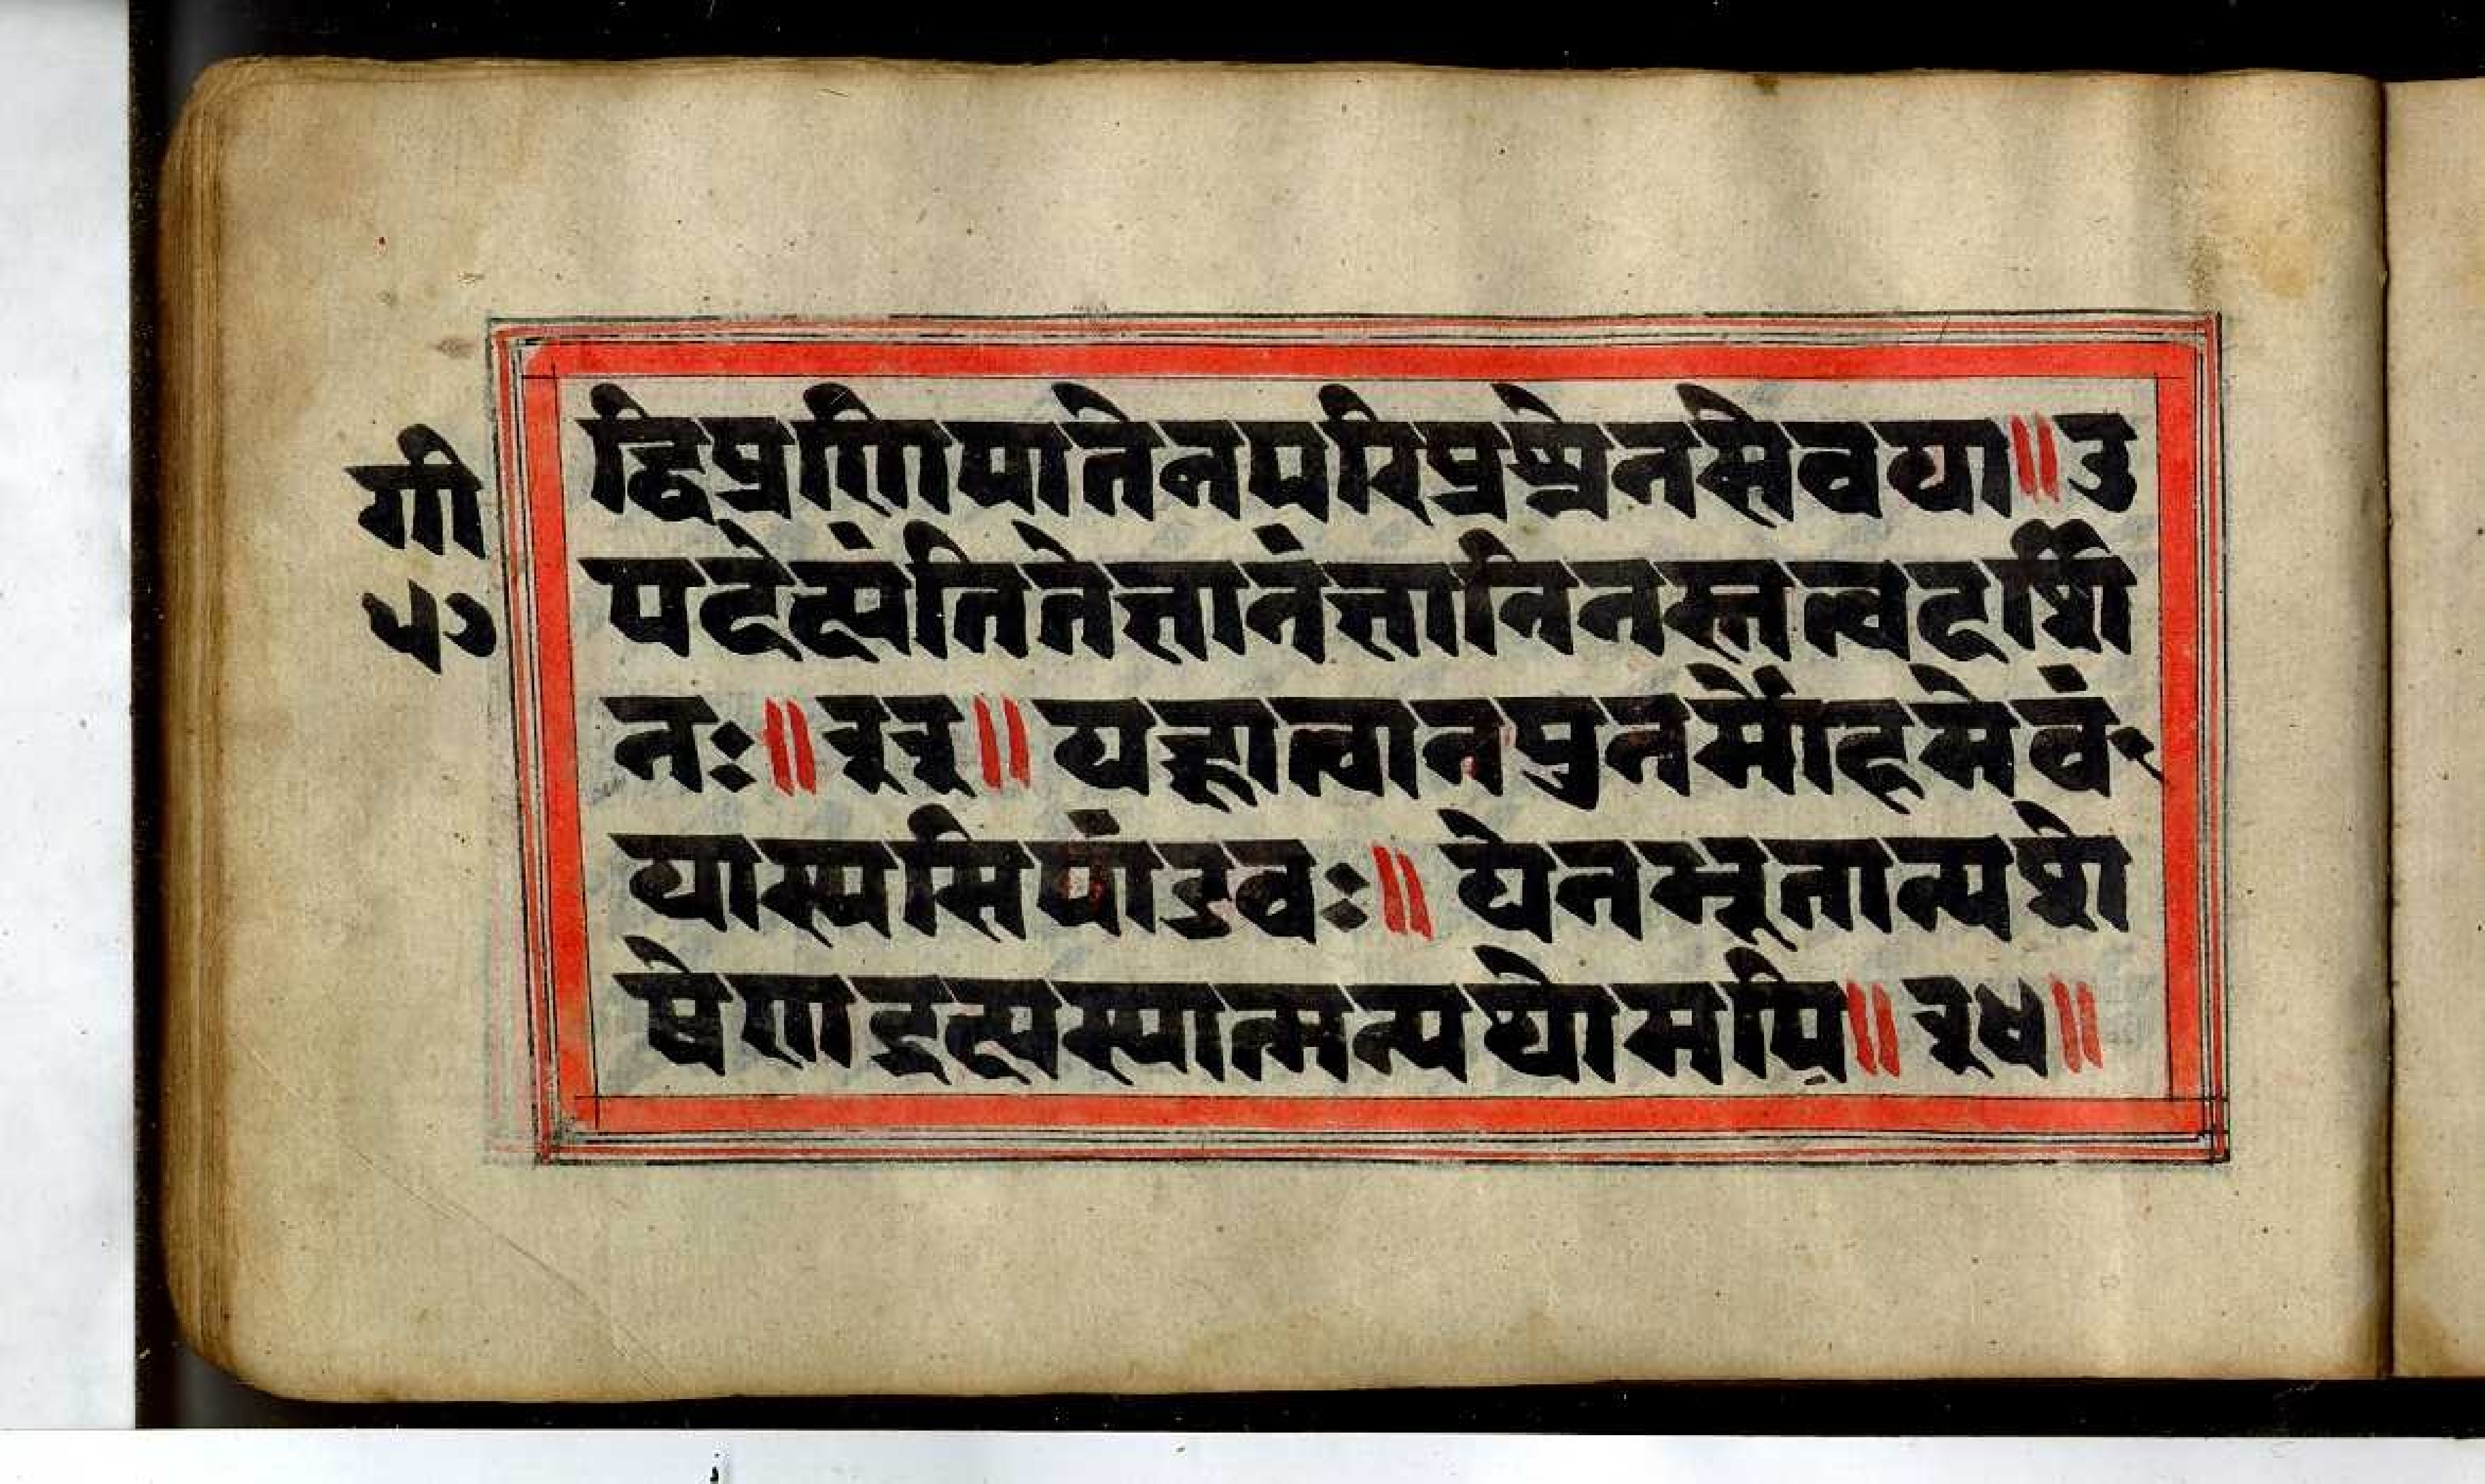 गी
५०
द्धिप्रणिपातेनपरिप्रश्नेनसेवया॥उ
पदेक्ष्यंतितेज्ञानंज्ञानिनस्तत्त्वदर्शि
नः॥३३॥यज्ज्ञात्वानपुनर्मोहमेवं
यास्यसिपांडवः॥येनभूतान्यशे
षेणद्रक्ष्यस्यात्मन्यथोमयि॥३४॥